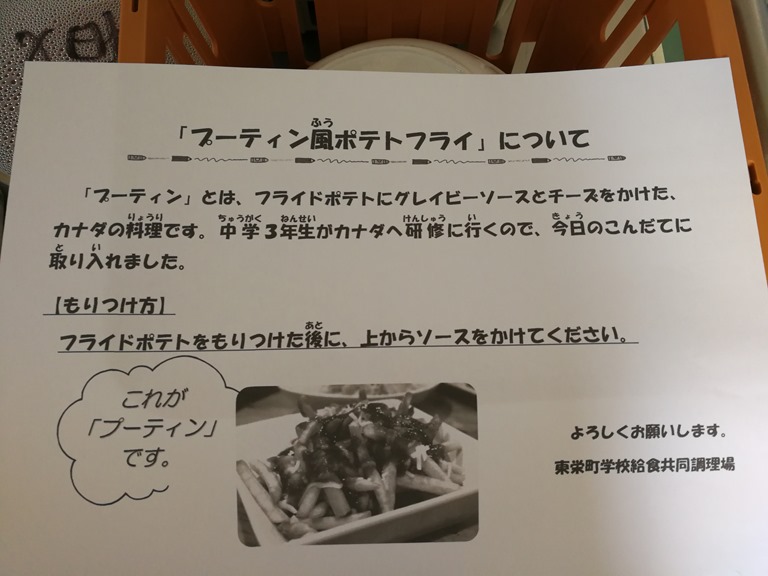 「プーティン風ポテトフライ」について
ふう
「プーティン」とは、フライドポテトにグレイビーソースとチーズをかけた、
りょうり ちゅうがく ねんせい けんしゅう い きょう
カナダの料理です。中学3年生がカナダへ研修に行くので、今日のこんだてに
と い
取り入れました。
【もりつけ方】
あと
フライドポテトをもりつけた後に、上からソースをかけてください。
これが
「プーティン」
です。
よろしくお願いします。
東栄町学校給食共同調理場